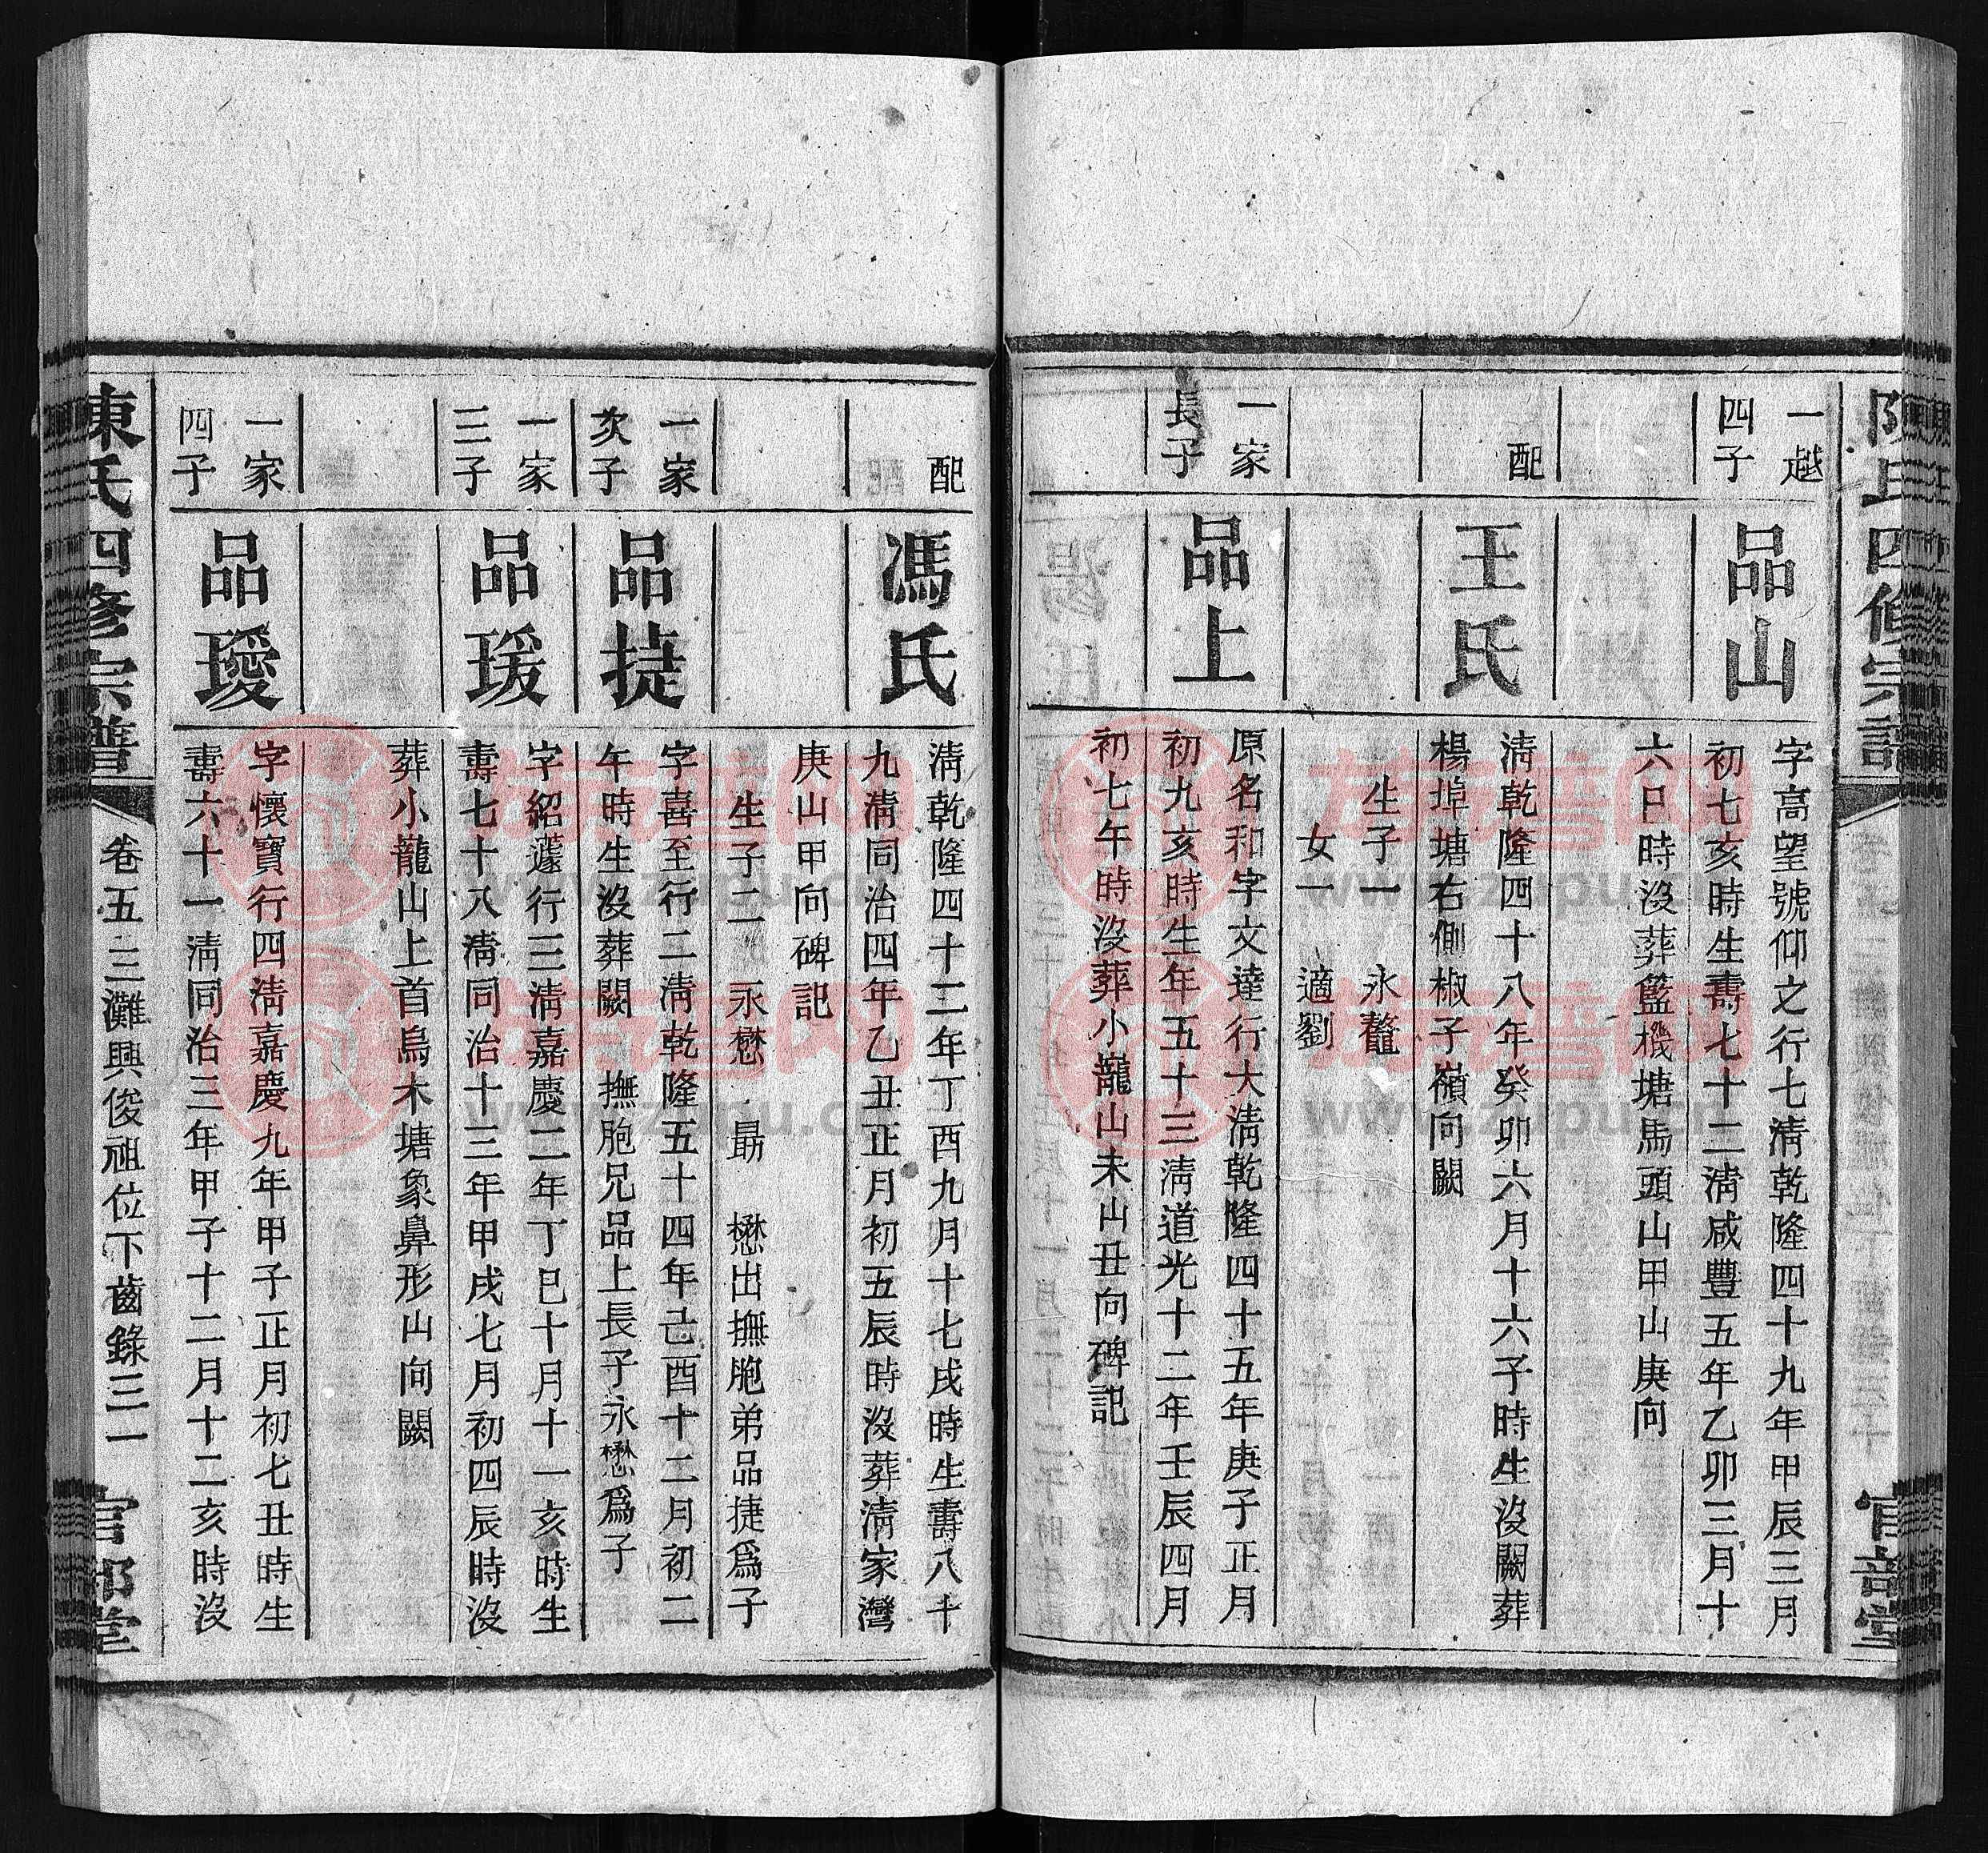 陳氏四修宗譜
官部堂
一越
四子
品山
字高望號仰之行七淸乾隆四十九年甲辰三月
初七亥時生壽七十二淸咸豐五年乙卯三月十
六日時沒葬籃機塘馬頭山甲山庚向
配
王氏
淸乾隆四十八年癸卯六月十六子時生沒闕葬
楊埠塘右側椒子嶺向闕
生子一 永鼇
女一 適劉
一家
長子
品上
原名和字文達行大淸乾隆四十五年庚子正月
初九亥時生年五十三淸道光十二年壬辰四月
初七午時沒葬小巃山未山丑向碑記
配
馮氏
淸乾隆四十二年丁酉九月十七戌時生壽八十
九淸同治四年乙丑正月初五辰時沒葬淸家灣
庚山甲向碑記
生子二 永懋 勗 懋出撫胞弟品捷爲子
一家
次子
品捷
字喜至行二淸乾隆五十四年己酉十二月初二
午時生沒葬闕 撫胞兄品上長子永懋爲子
一家
三子
品瑗
字紹蘧行三淸嘉慶二年丁巳十月十一亥時生
壽七十八淸同治十三年甲戌七月初四辰時沒
葬小龍山上首烏木塘象鼻形山向闕
一家
四子
品璦
字懷寶行四淸嘉慶九年甲子正月初七丑時生
壽六十一淸同治三年甲子十二月十二亥時沒
陳氏四修宗譜
卷五三灘興俊祖位下齒錄三一
官部堂
族譜网
www.zupu.cn
族譜网
www.zupu.cn
族譜网
www.zupu.cn
族譜网
www.zupu.cn